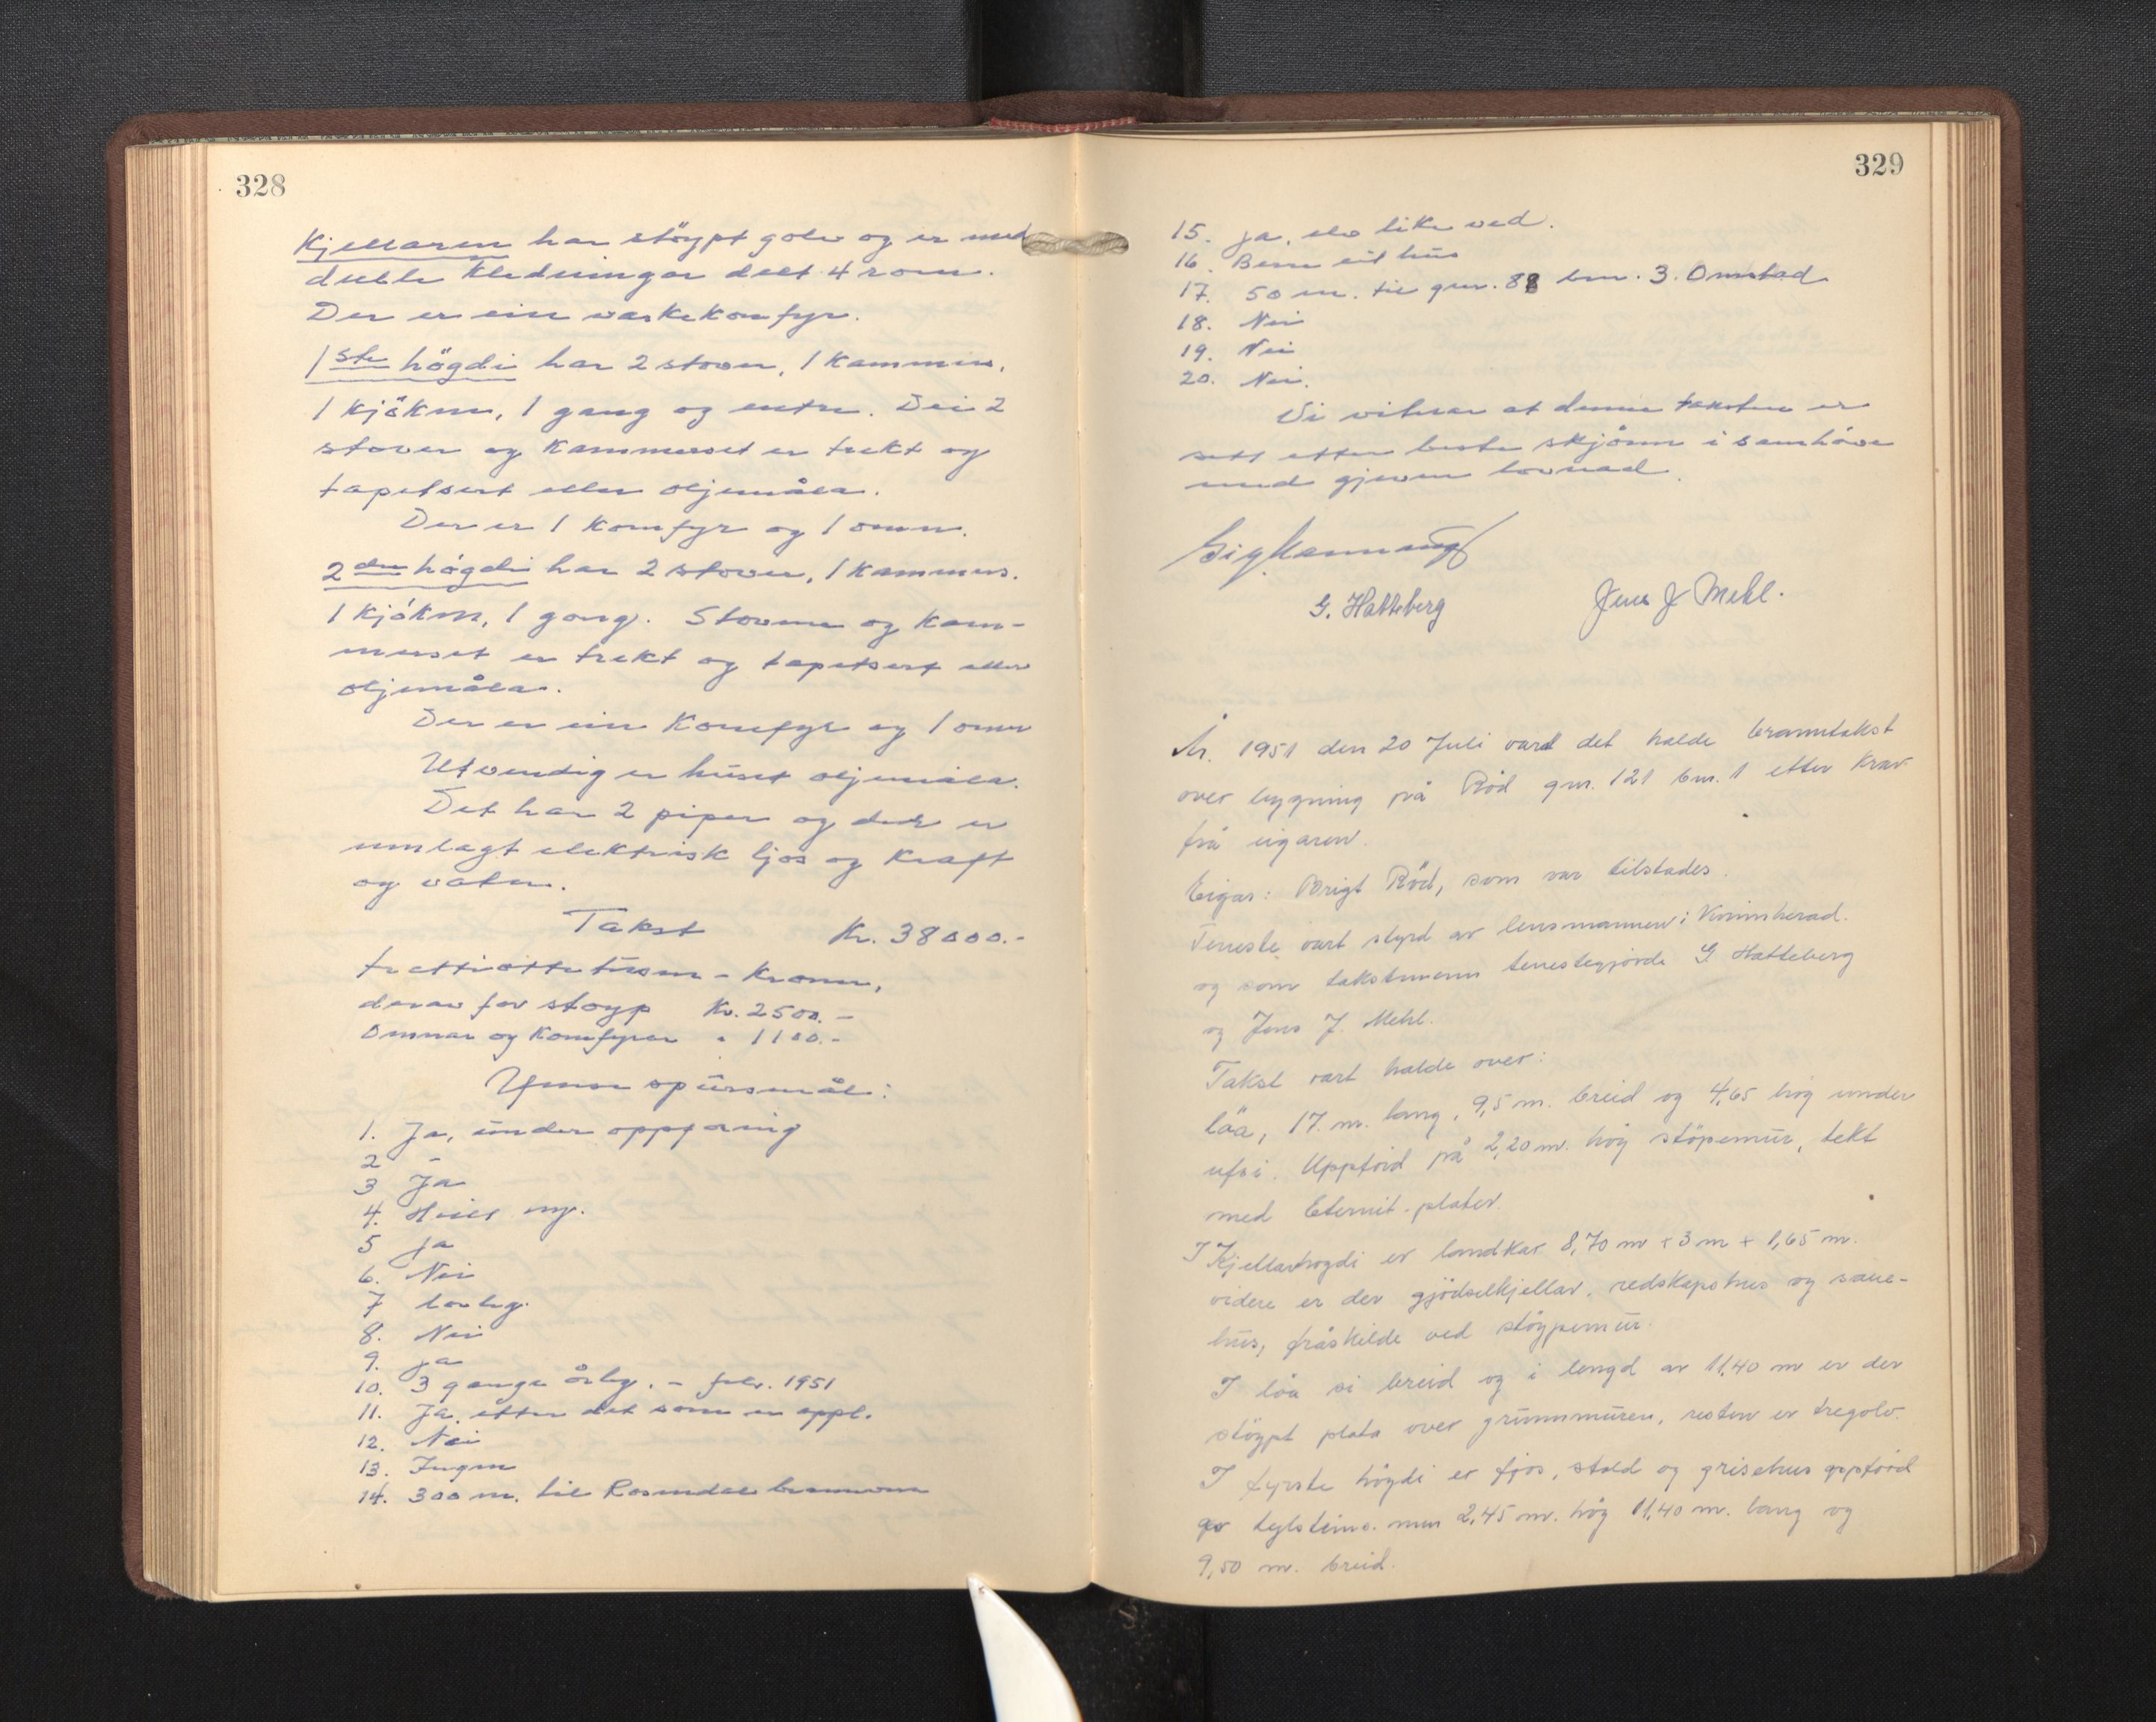 328
Kjellaren har støypt golv og er med
duble kledningar delt 4 rom.
Der er ein vaskekomfyr.
1ste högdi har 2 stover, 1 kammers,
1 kjöken, 1 gang og entre. Dei 2
stover og kammerset er trekt og
tapetsert eller oljemåla.
Der er 1 komfyr og 1 omn.
2den högdi har 2 stover, 1 kammers.
1 kjöken, 1 gang. Stovene og kam-
merset er trekt og tapetsert eller
oljemåla.
Der er ein komfyr og 1 omn
Utvendig er huset oljemåla.
Det har 2 piper og der er
innlagt elektrisk ljos og kraft
og vatn.
Takst Kr. 38000.-
trettiåttetusen - kroner,
derav for støyp Kr. 2500.-
Omnar og komfyrer " 1100.-
Ymse spursmål:
1. Ja, under oppföring
2 -
3 Ja
4. Heilt ny.
5 Ja
6. Nei
7 lovleg.
8. Nei
9. Ja
10. 3 gange årleg. - febr. 1951
11. Ja, etter det som er oppl.
12. Nei
13. Ingen
14. 300 m. til Rosendal brannvern
329
15. Ja, elv like ved.
16. Berre eit hus
17. 50 m. til gnr. 88 bnr. 3. Omstad
18. Nei
19. Nei
20. Nei.
Vi vitnar at denne taksten er
sett etter beste skjønn i samhöve
med gjeven lovnad.
G. Hatteberg Jens J Mehl.
År. 1951 den 20 Juli vart det halde branntakst
over bygning på Röd gnr. 121 bnr. 1 etter krav
frå eigaren.
Eigar: Brigt Röd, som var tilstades.
Teneste vart styrd av lensmannen i Kvinnherad.
og som takstmenn tenestegjorde G Hatteberg
og Jens J. Mehl.
Takst vart halde over:
löa, 17. m. lang, 9,5 m. breid og 4,65 hög under
ufsi. Uppförd på 2,20 m. hög stöpemur, tekt
med Eternit-plater.
I Kjellarhögdi er landkar 8,70 m + 3 m + 1,65 m.
videre er der gjödselkjellar, redskapshus og saue-
hus, fråskilde ved stöypemur.
I löa si breid og i lengd av 11,40 m er der
stöypt plata over grunnmuren, resten er tregolv.
I fyrste högdi er fjos, stall og grisehus oppförd
av teglsteins. mur 2,45 m. hög 11,40 m. lang og
9,50 m. breid.